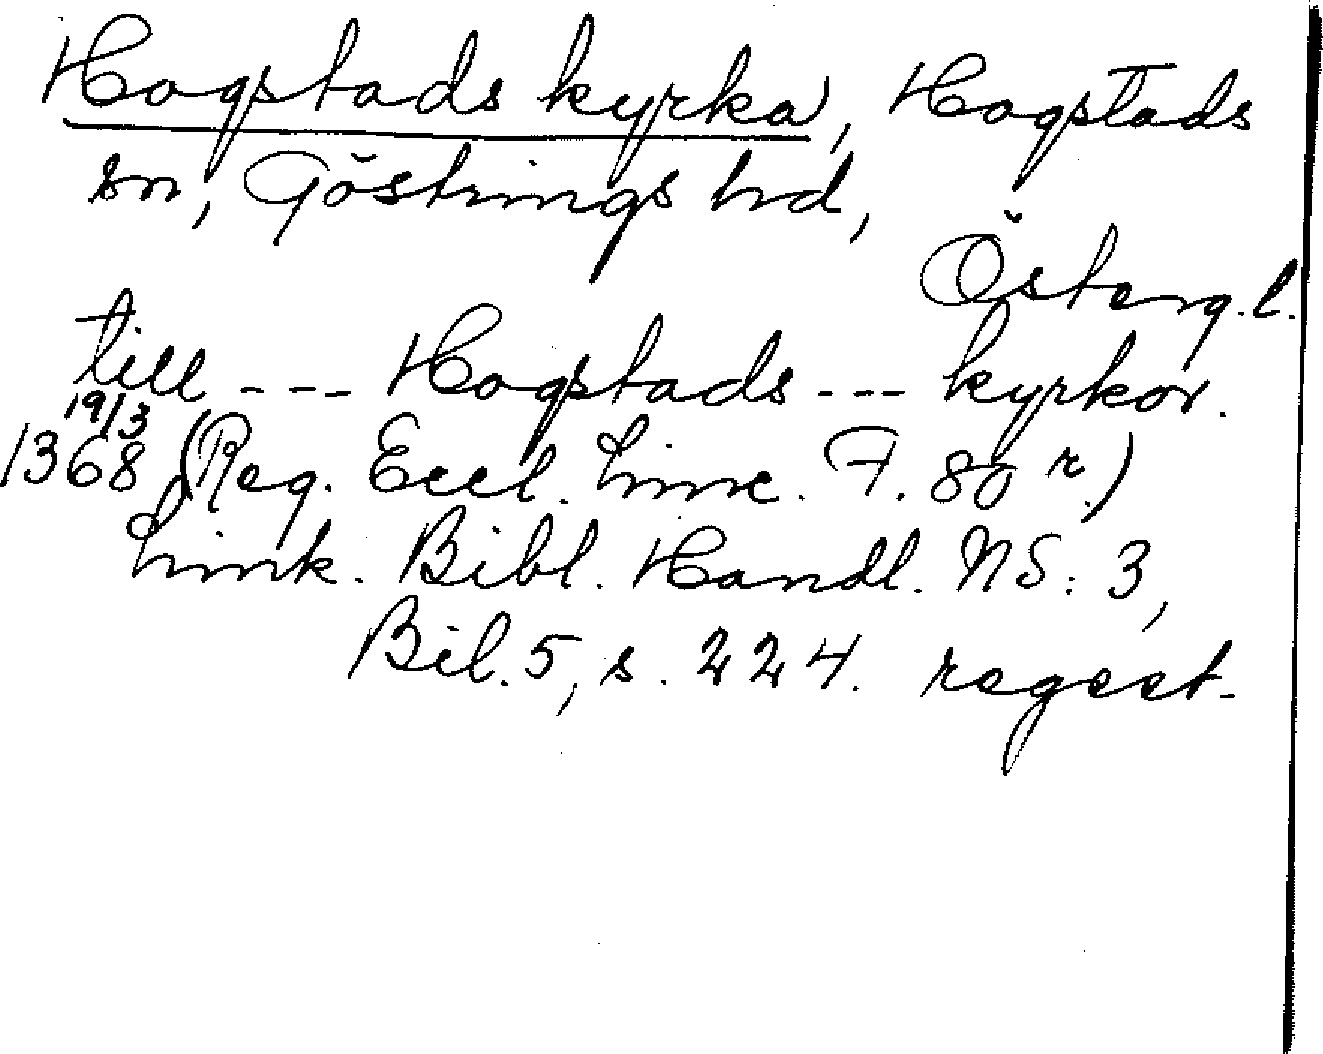 Hogstads kyrka, Hogstads
sn, Göstrings hd,
Österg.l.
till --- Hogstads --- kyrkor.
19/3
1368 (Reg. Eccl. Linc. F. 80 r.)
Link. Bibl. Handl. NS: 3,
Bil. 5, s. 224. regest.